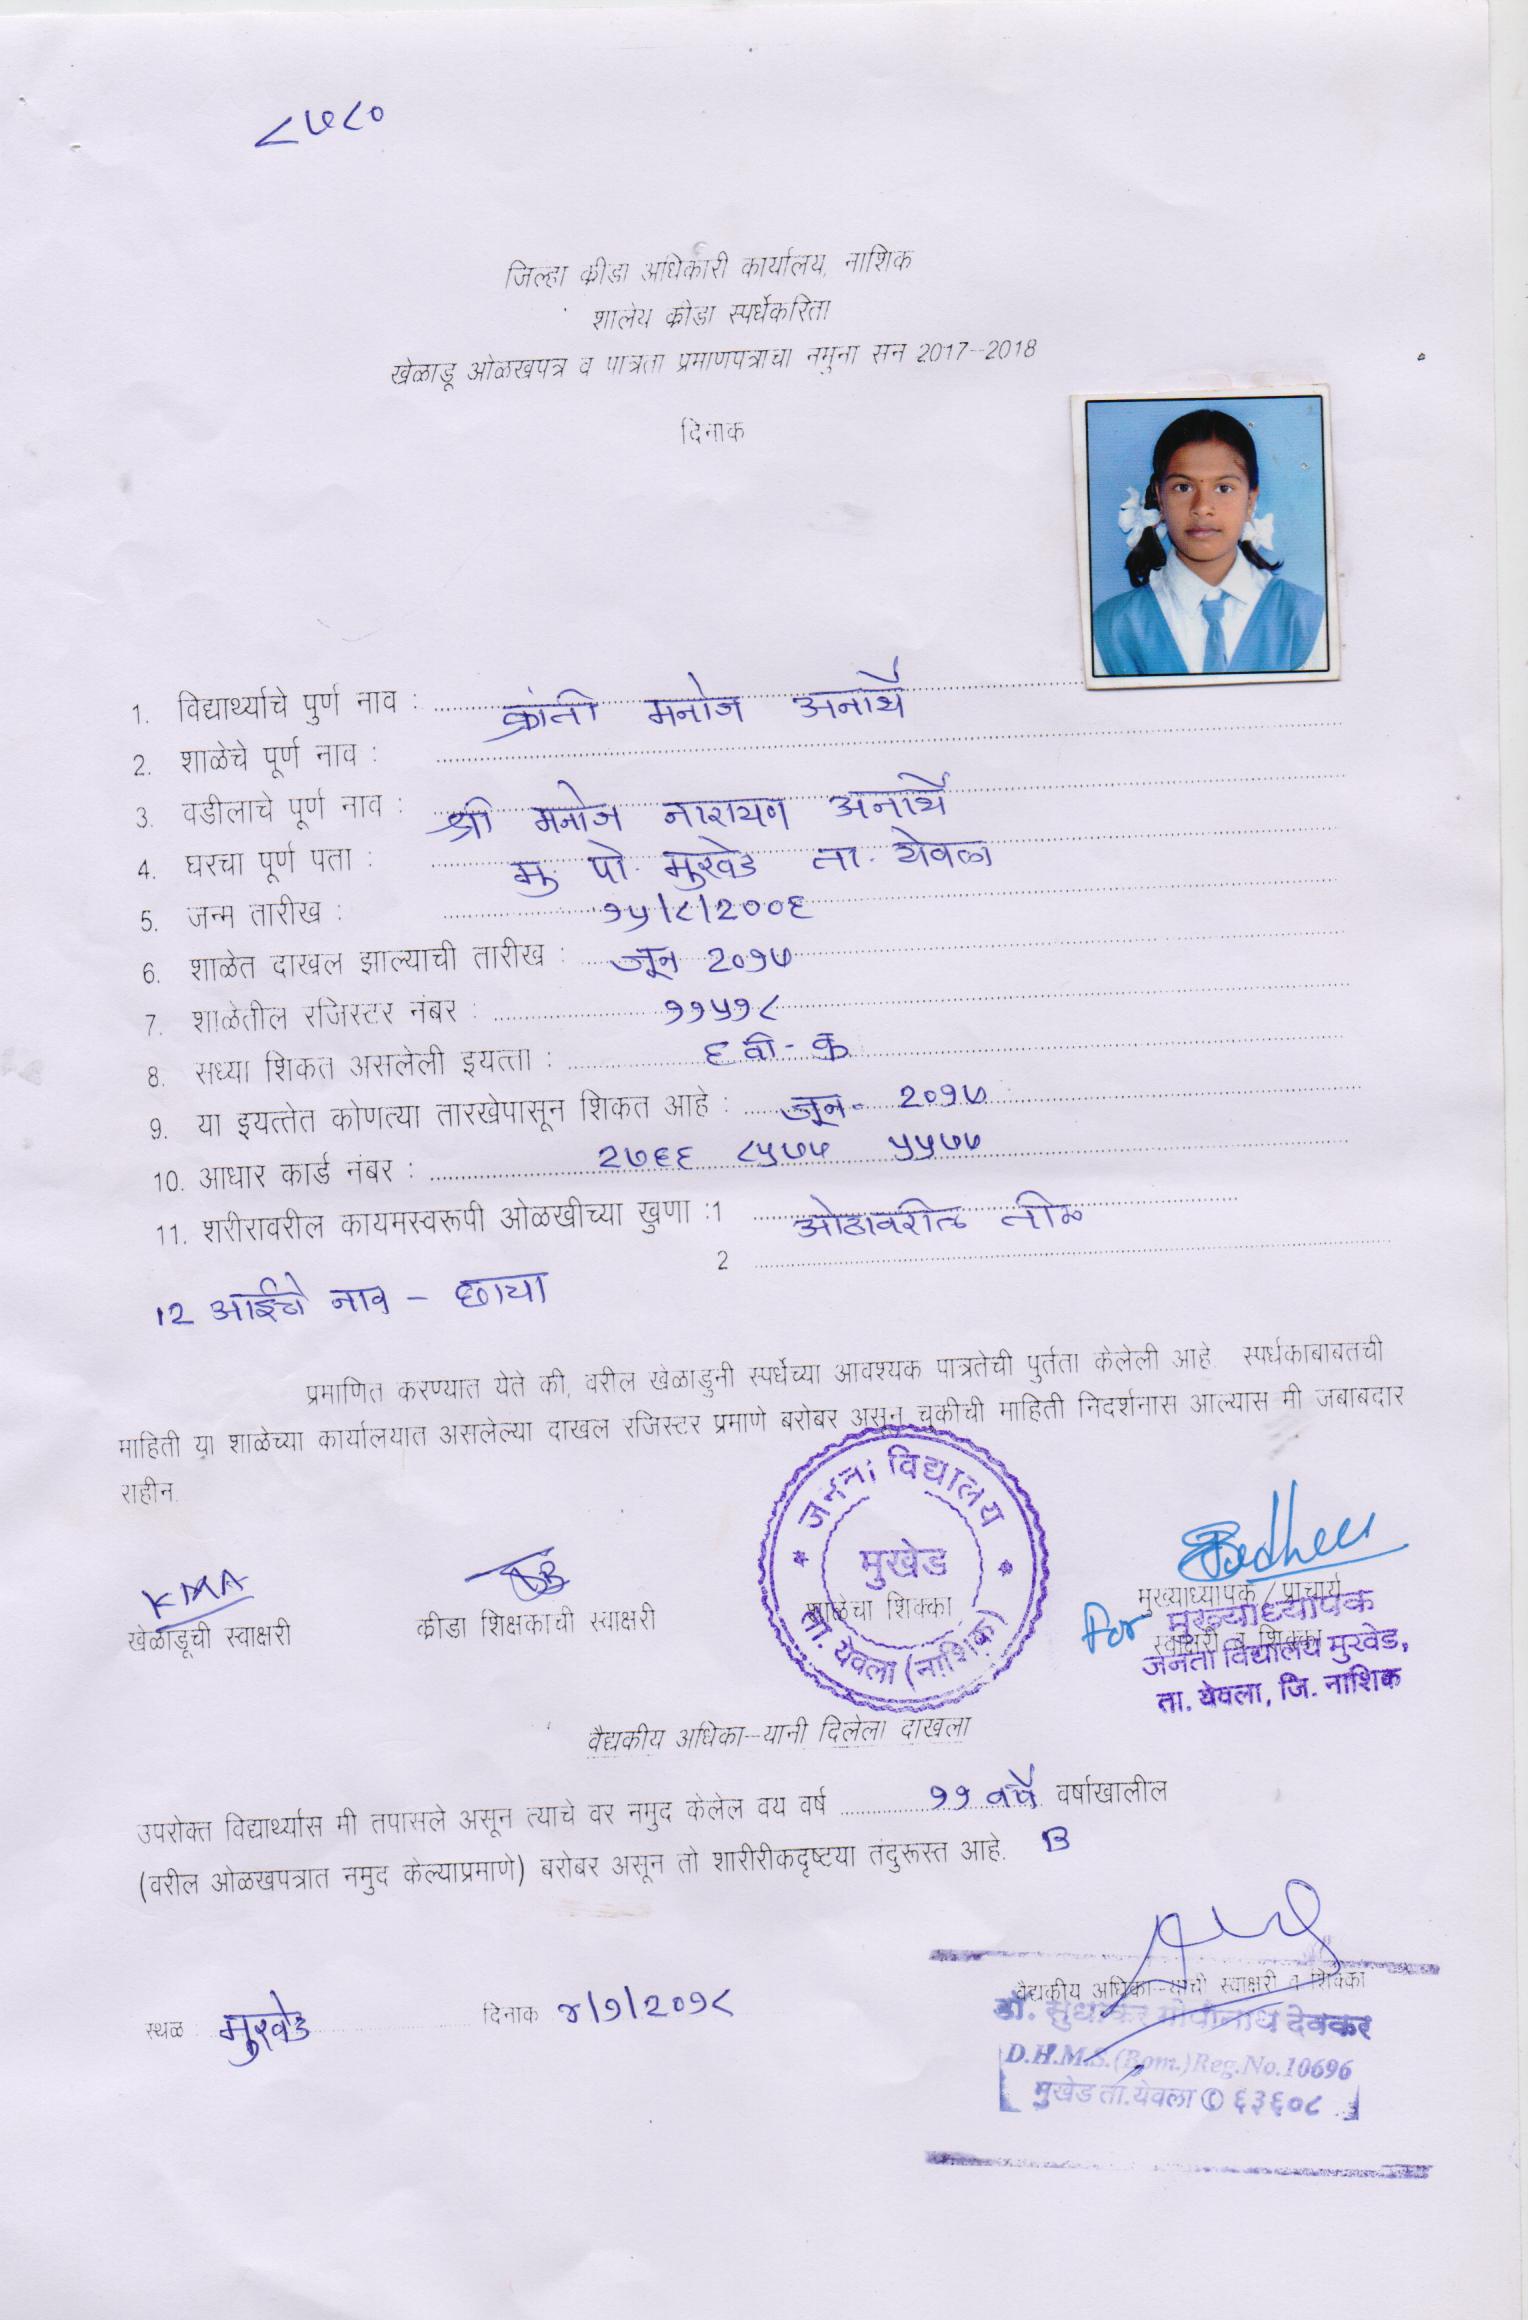 ८७८०
जिल्हा क्रीडा अधिकारी कार्यालय, नाशिक
शालेय क्रीडा स्पर्धेकरिता
खेळाडू ओळखपत्र व पात्रता प्रमाणपत्राचा नमुना सन 2017--2018
दिनाक
1. विद्यार्थ्याचे पुर्ण नाव : क्रांती मनोज अनार्थे
2. शाळेचे पूर्ण नाव :
3. वडीलाचे पूर्ण नाव : श्री मनोज नारायण अनार्थे
4. घरचा पूर्ण पता : मु. पो. मुखेड ता. येवला
5. जन्म तारीख : १५/८/२००६
6. शाळेत दाखल झाल्याची तारीख : जून २०१७
7. शाळेतील रजिस्टर नंबर : ११५१८
8. सध्या शिकत असलेली इयत्ता : ६ वी - क
9. या इयत्तेत कोणत्या तारखेपासून शिकत आहे : जून - २०१७
10. आधार कार्ड नंबर : २७६६ ८५७५ ५५७७
11. शरीरावरील कायमस्वरूपी ओळखीच्या खुणा :1 ओठावरील तीळ
2
12 आईचे नाव - छाया
प्रमाणित करण्यात येते की, वरील खेळाडुनी स्पर्धेच्या आवश्यक पात्रतेची पुर्तता केलेली आहे. स्पर्धकाबाबतची
माहिती या शाळेच्या कार्यालयात असलेल्या दाखल रजिस्टर प्रमाणे बरोबर असून चुकीची माहिती निदर्शनास आल्यास मी जबाबदार
राहीन.
KMA
खेळाडूची स्वाक्षरी
क्रीडा शिक्षकाची स्वाक्षरी
जनता विद्यालय
मुखेड
ता. येवला (नाशिक)
शाळेचा शिक्का
मुख्याध्यापक / प्राचार्य
स्वाक्षरी व शिक्का
For मुख्याध्यापक
जनता विद्यालय मुखेड,
ता. येवला, जि. नाशिक
वैद्यकीय अधिका--यानी दिलेला दाखला
उपरोक्त विद्यार्थ्यास मी तपासले असून त्याचे वर नमुद केलेल वय वर्ष ११ वर्षे वर्षाखालील
(वरील ओळखपत्रात नमुद केल्याप्रमाणे) बरोबर असून तो शारीरीकदृष्टया तंदुरूस्त आहे. B
वैद्यकीय अधिका--याची स्वाक्षरी व शिक्का
स्थळ : मुखेड दिनाक ४/१/२०१८
डॉ. सुधाकर गोपीनाथ देवकर
D.H.M.S.(Bom.)Reg.No.10696
मुखेड ता.येवला ✆ ६३६०८